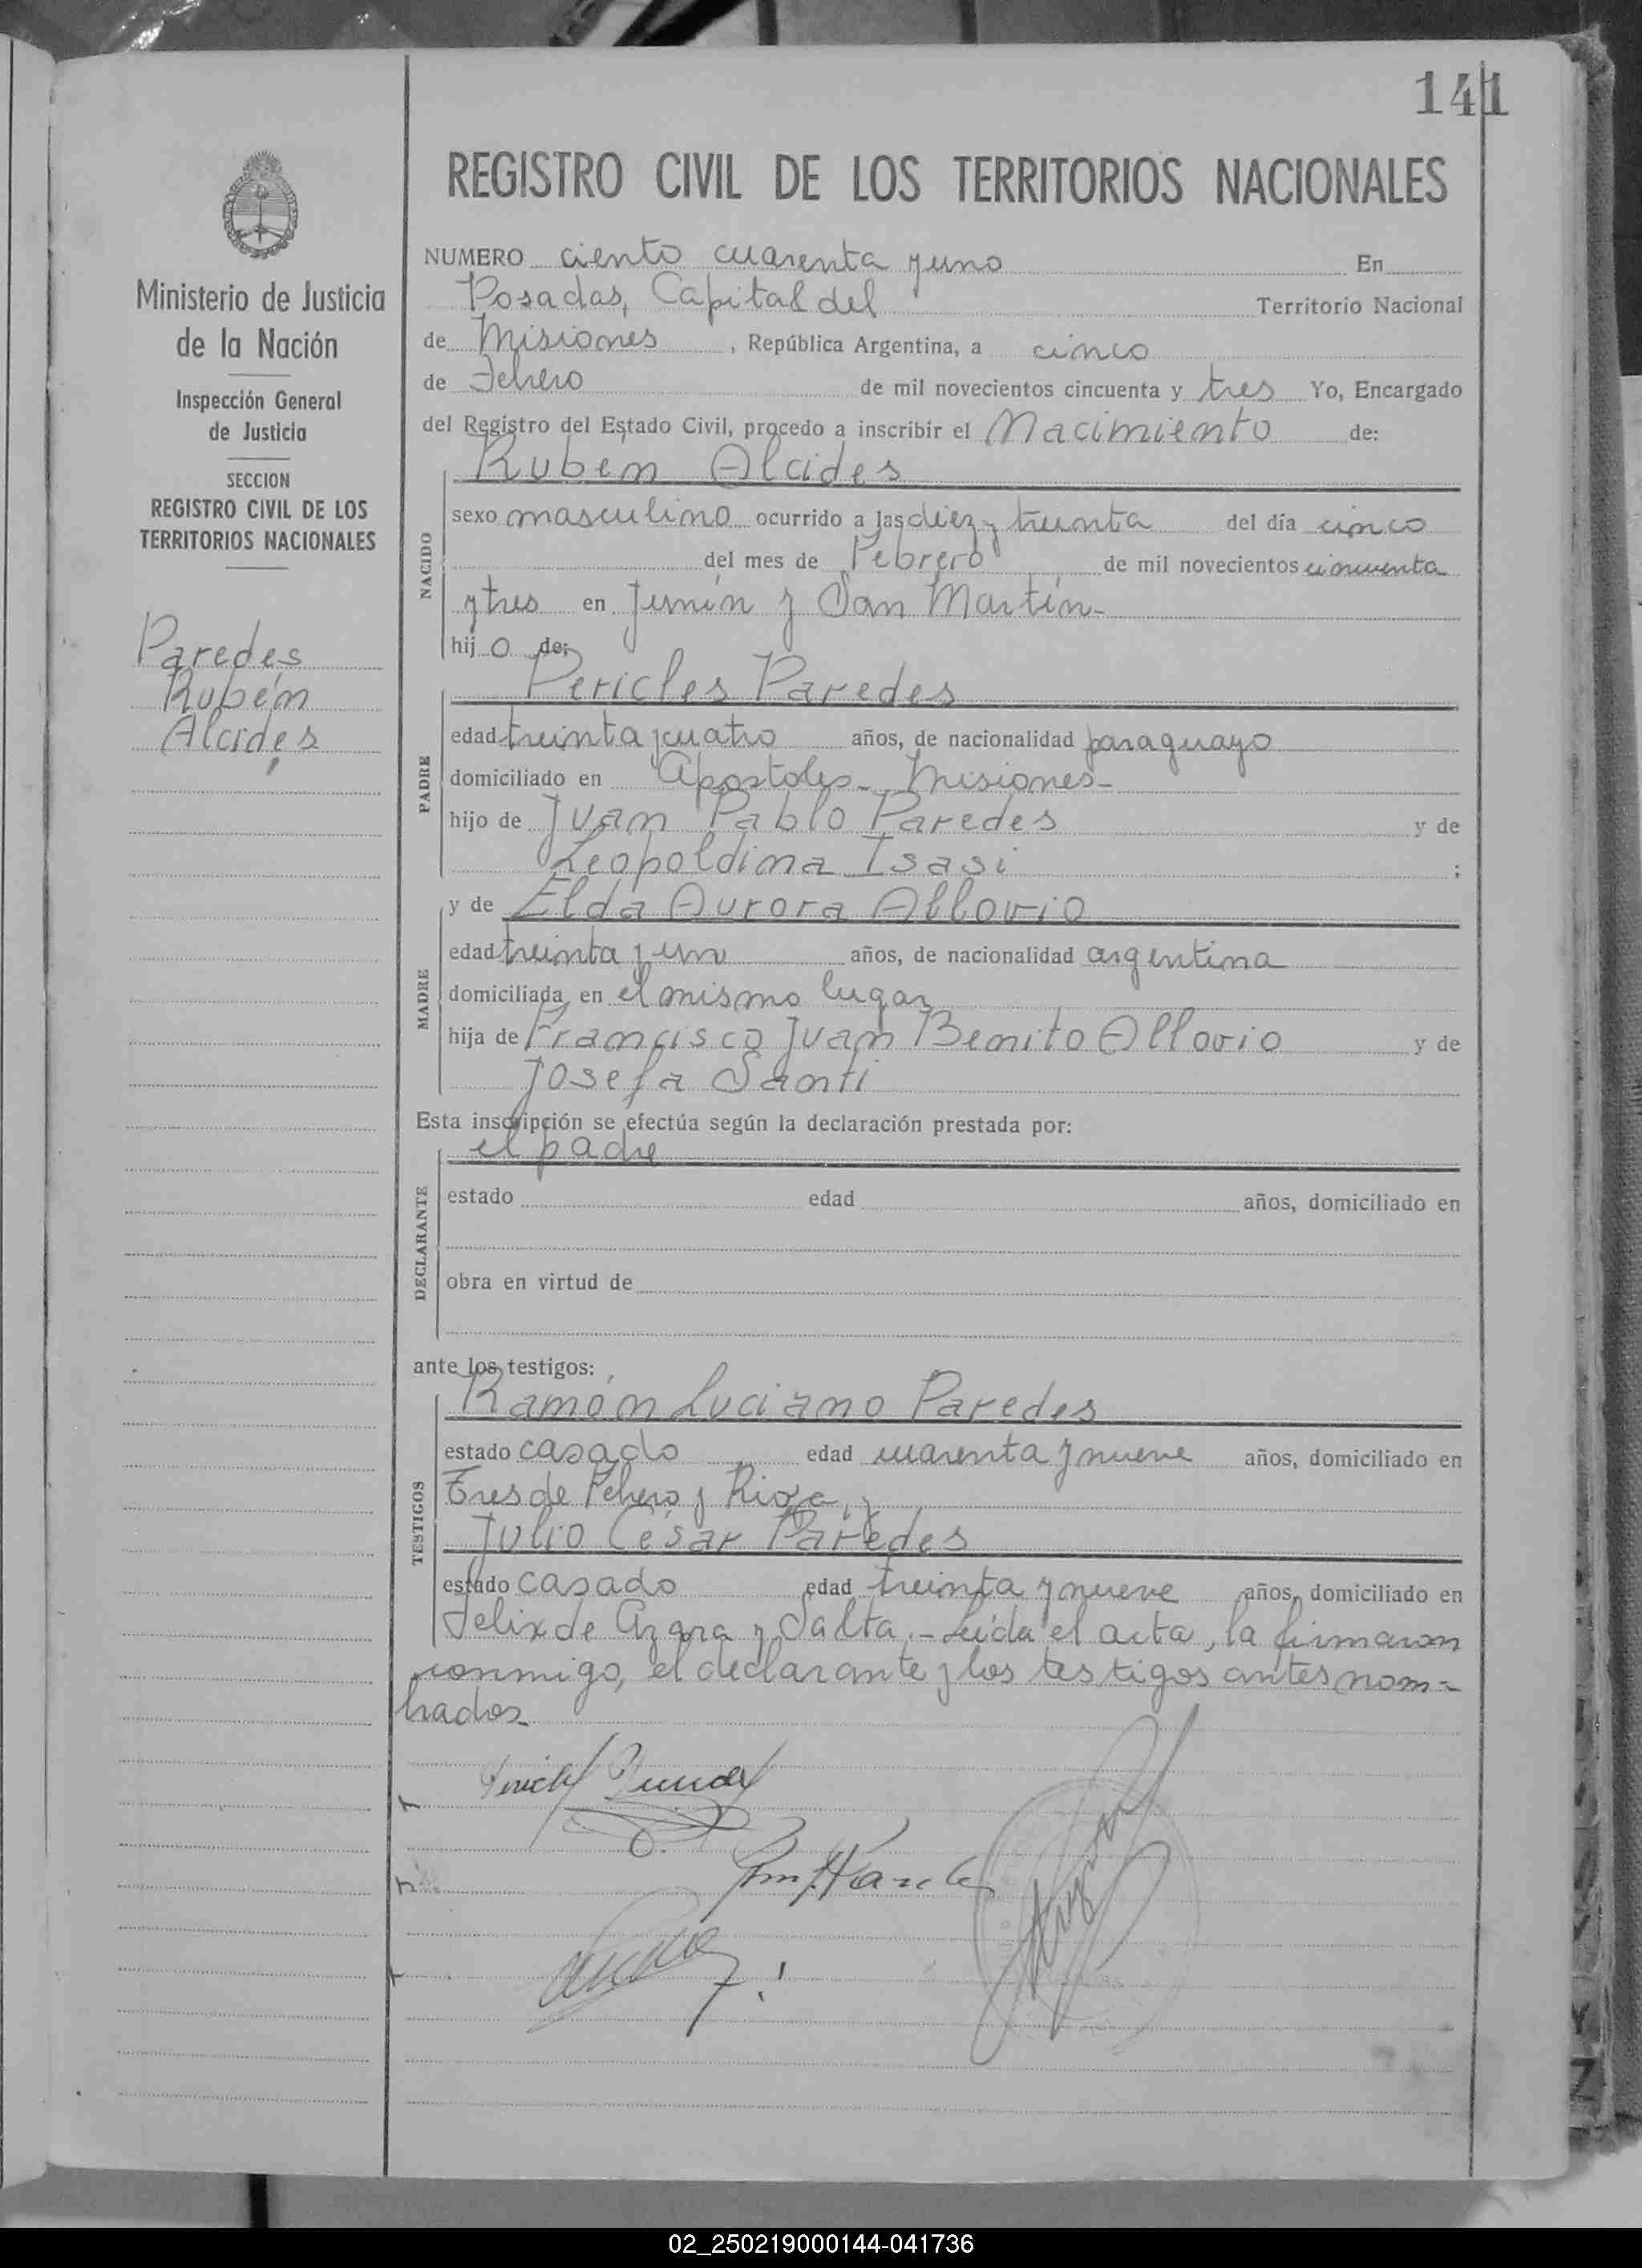 141
REGISTRO CIVIL DE LOS TERRITORIOS NACIONALES
Ministerio de Justicia
de la Nación
Inspección General
de Justicia
SECCION
REGISTRO CIVIL DE LOS
TERRITORIOS NACIONALES
Paredes
Rubén
Alcides
NUMERO ciento cuarenta y uno En
Posadas, Capital del Territorio Nacional
de Misiones, República Argentina, a cinco
de Febrero de mil novecientos cincuenta y tres Yo, Encargado
del Registro del Estado Civil, procedo a inscribir el Nacimiento de:
Ruben Alcides
NACIDO
sexo masculino ocurrido a las diez y treinta del día cinco
del mes de Febrero de mil novecientos cincuenta
y tres en Junín y San Martín-
hijo de:
Pericles Paredes
PADRE
edad treinta y cuatro años, de nacionalidad paraguayo
domiciliado en Apostoles- Misiones-
hijo de Juan Pablo Paredes y de
Leopoldina Isasi ;
y de Elda Aurora Allovio
MADRE
edad treinta y un años, de nacionalidad argentina
domiciliada en el mismo lugar
hija de Francisco Juan Benito Allovio y de
Josefa Santi
Esta inscripción se efectúa según la declaración prestada por:
el padre
DECLARANTE
estado edad años, domiciliado en
obra en virtud de
ante los testigos:
Ramón Luciano Paredes
TESTIGOS
estado casado edad cuarenta y nueve años, domiciliado en
Tres de Febrero y Rioja, y
Julio César Paredes
estado casado edad treinta y nueve años, domiciliado en
Felix de Azara y Salta.- Leída el acta, la firmaron
conmigo, el declarante y los testigos antes nom-
brados-
02_250219000144-041736